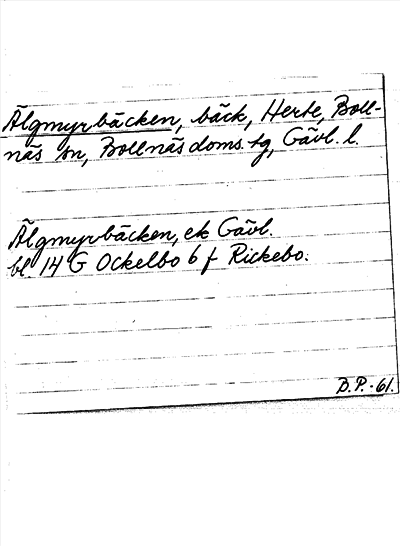 Älgmyrbäcken, bäck, Herte, Boll-
näs sn, Bollnäs doms. tg, Gävl. l.
Älgmyrbäcken, ek Gävl.
bl. 14 G Ockelbo 6 f Rickebo.
B.P.-61.